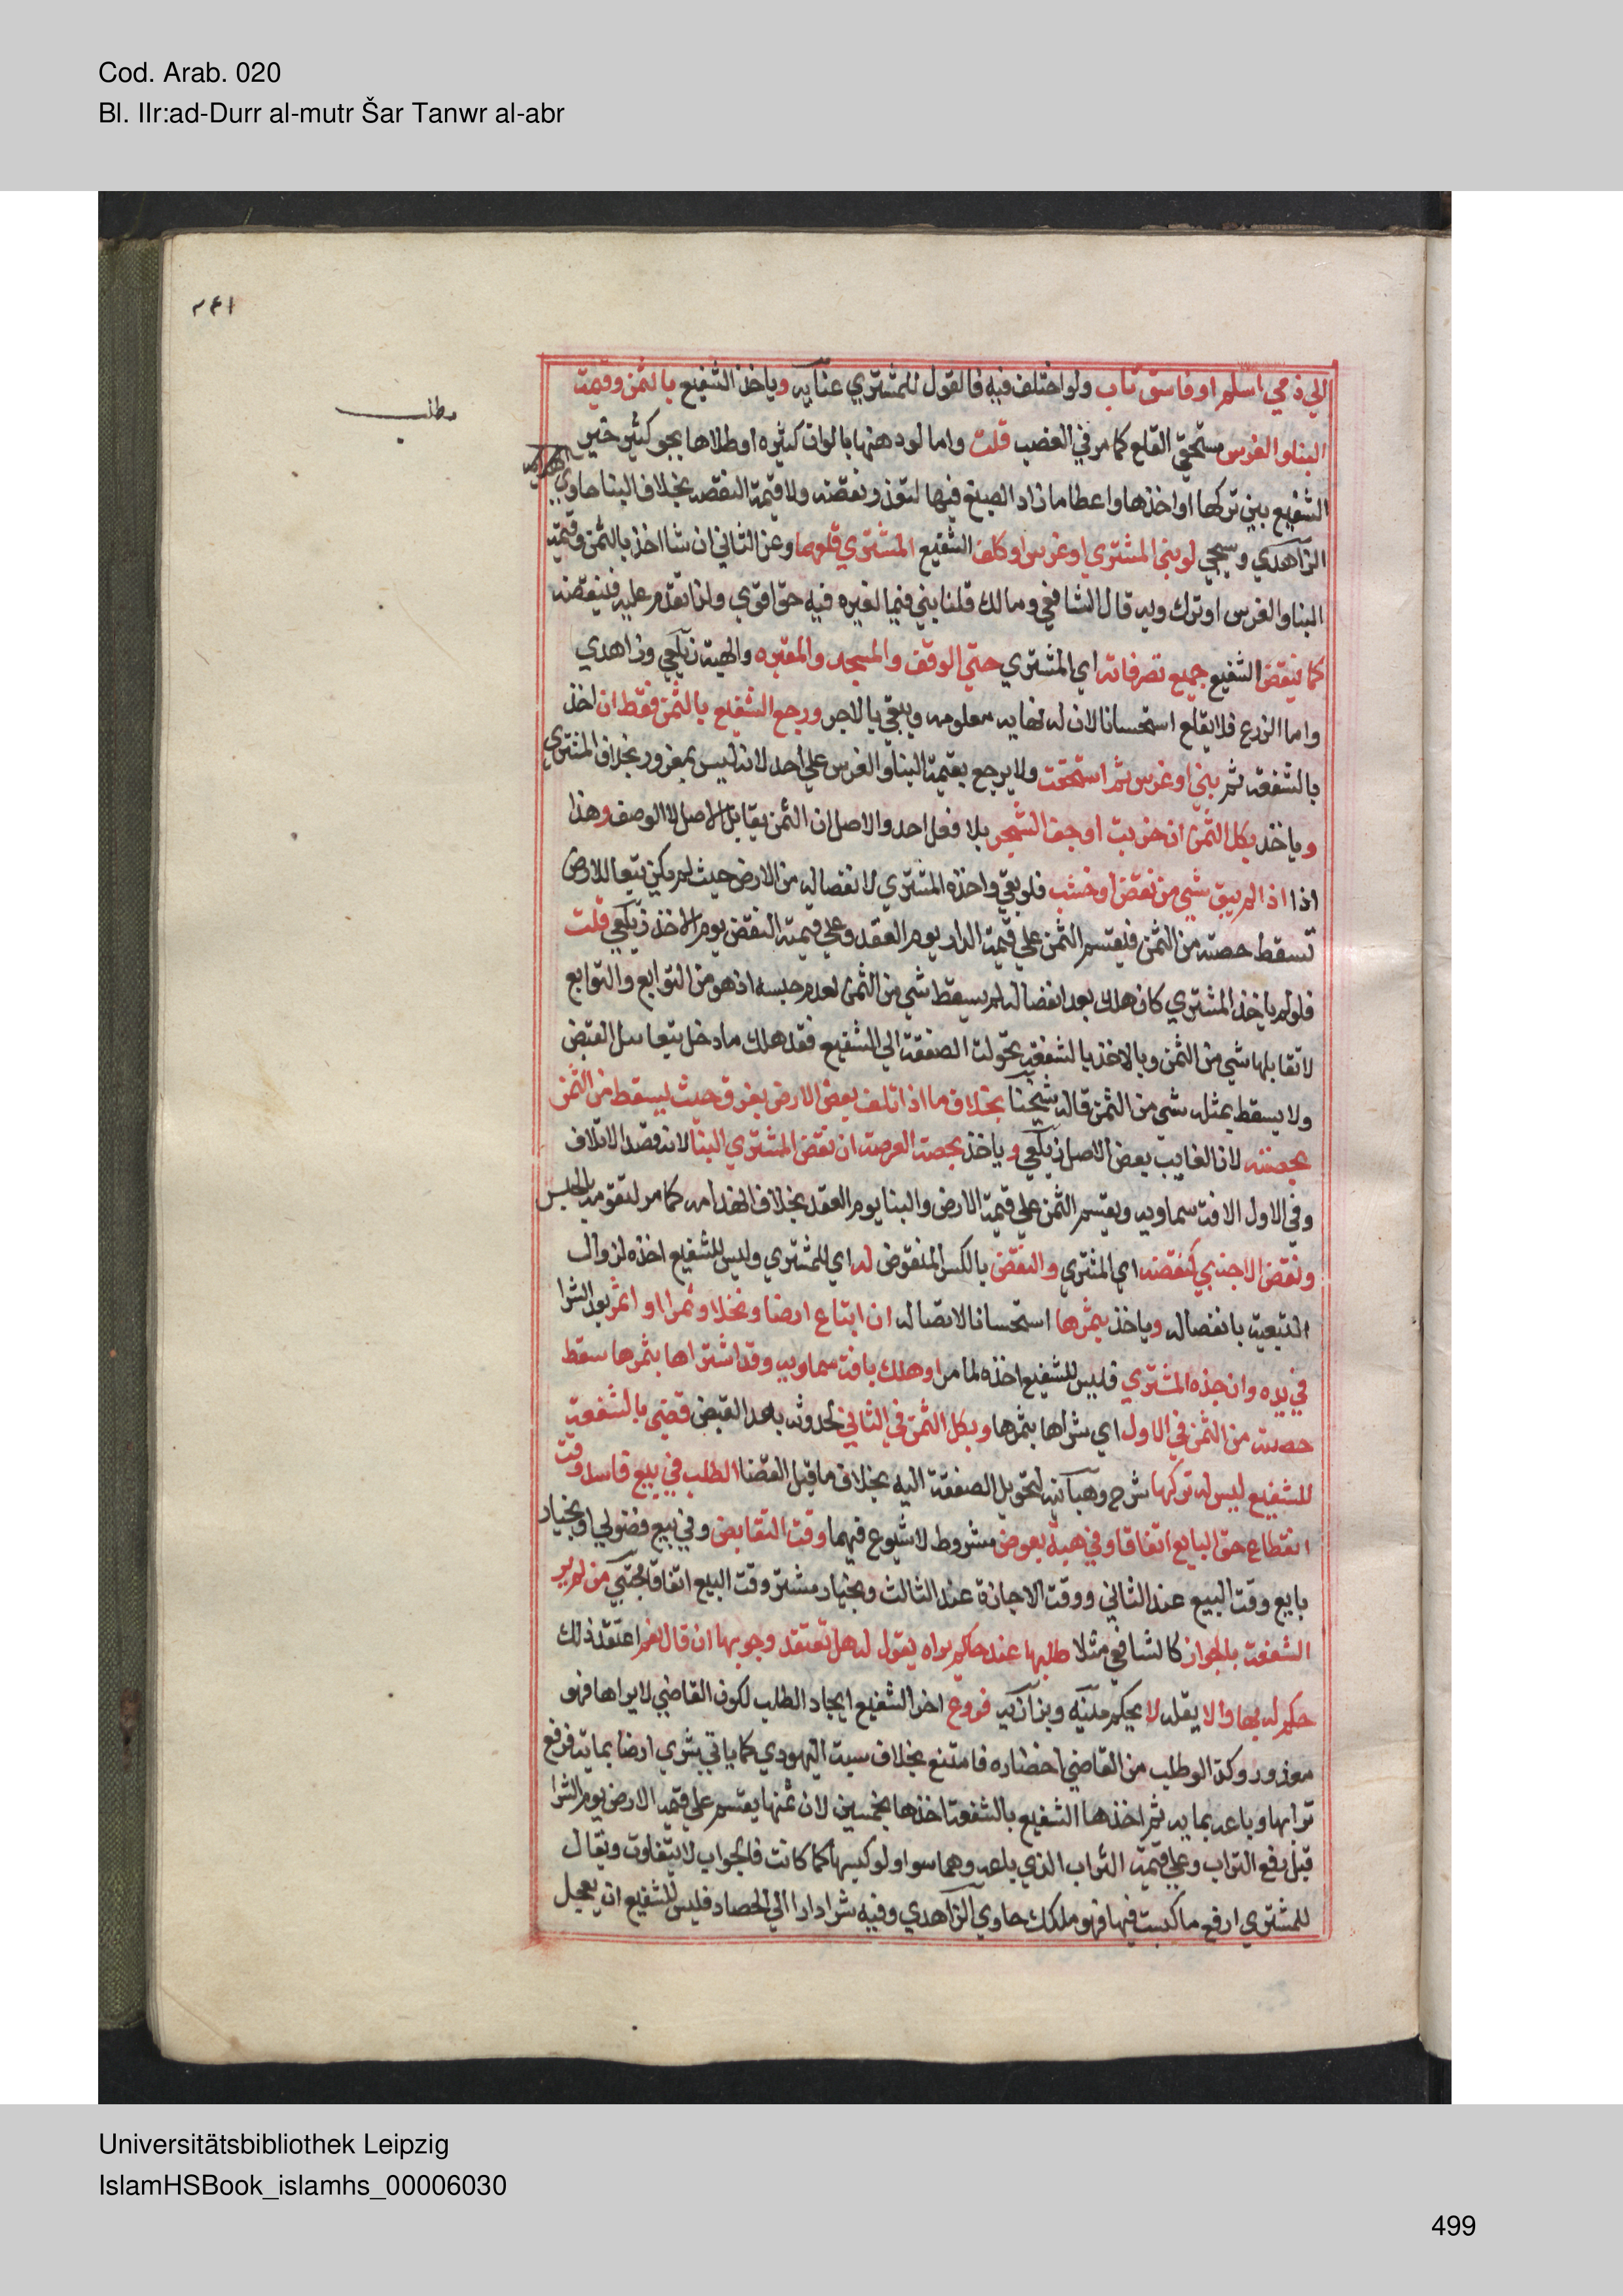 Cod. Arab. 020
Bl. IIr:ad-Durr al-mutr Šar Tanwr al-abr
٢٤١
مطلب
الي ذمي اسلم او فاسق تاب ولو اختلف فيه فالقول للمشتري عنايه وياخذ الشفيع بالثمن وقيمة
البناو الغرس مستحقي القلع كما مر في الغصب قلت واما لو دهنها بالوان كثيره او طلاها بجص كثير خير
الشفيع بين تركها او اخذها واعطا ما زاد الصبغ فيها لتعذر نقضه ولا قيمة لنقضه بخلاف البنا حاوي
الزاهدي وسيجي لو بني المشتري او غرس او كلف الشفيع المشتري قلعهما وعن الثاني ان شا اخذ بالثمن وقيمة
البنا والغرس او ترك وبه قال الشافعي ومالك قلنا بني فيما لغيره فيه حق اقوي ولذا تقدم عليه فينقضه
كما ينقض الشفيع جميع تصرفاته اي المشتري حتي الوقف والمسجد والمقبره والهبة زيلعي وزاهدي
واما الزرع فلا يقلع استحسانا لان له نهايه معلومه ويبقي بالاجر ورجع الشفيع بالثمن فقط ان اخذ
بالشفعه ثم بني او غرس ثم استحقت ولا يرجع بقيمة البنا والغرس علي احد لانه ليس بمغرور بخلاف المشتري
وياخذ بكل الثمن ان خربت او جف الشجر بلا فعل احد والاصل ان الثمن يقابل الاصل لا الوصف وهذا
اذا اذا لم يبق شي من نقض او خشب فلو بقي واخذه المشتري لانفصاله من الارض حيث لم يكن تبعا للارض
تسقط حصته من الثمن فيقسم الثمن علي قيمة الدار يوم العقد وعلي قيمة النقض يوم الاخذ زيلعي قلت
فلو لم ياخذ المشتري كان هلك بعد انفصاله لم يسقط شي من الثمن لعدم حبسه اذ هو من التوابع والتوابع
لا تقابلها شي من الثمن وبالاخذ بالشفعه تحولت الصفقة الي الشفيع فقد هلك ما دخل تبعا قبل القبض
ولا يسقط بمثله شي من الثمن قاله شيخنا بخلاف ما اذا تلف بعض الارض بغرق حيث يسقط من الثمن
بحصته لان الغايب بعض الاصل زيلعي وياخذ بحصة العرصة ان نقض المشتري البنا لانه قصد الاتلاف
وفي الاول الافة سماويه ويقسم الثمن علي قيمة الارض والبنا يوم العقد بخلاف انهدامه كما مر لتقومه بالحبس
ونقض الاجنبي كنقضه اي المشتري والنقض بالكسر المنقوض له اي للمشتري وليس للشفيع اخذه لزوال
التبعية بانفصاله وياخذ بثمرها استحسانا لاتصاله ان ابتاع ارضا ونخلا وثمرا او اثمر بعد الشرا
في يده وان جذه المشتري فليس للشفيع اخذه لما مر او هلك بافة سماويه وقد اشتراها بثمرها سقط
حصته من الثمن في الاول اي شراها بثمرها وبكل الثمن في الثاني لحدوثه بعد القبض قضي بالشفعة
للشفيع ليس له تركها شرح وهبانيه لتحويل الصفقة اليه بخلاف ما قبل القضا الطلب في بيع فاسد وقت
انقطاع حق البايع اتفاقا وفي هبة بعوض مشروط لا شيوع فيهما وقت التقابض وفي بيع فضولي او بخيار
بايع وقت البيع عند الثاني ووقت الاجازة عند الثالث وبخيار مشتر وقت البيع اتفاقا مجتبي من لم ير
الشفعة بالجوار كالشافعي مثلا طلبها عند حاكم يراه يقول له هل تعتقد وجوبها ان قال نعم اعتقد ذلك
حكم له بها والا يقله لا يحكم منيه وبزازيه فروع اخر الشفيع الجار الطلب لكون القاضي لا يراها فهو
معذور وكذا لو طلب من القاضي احضاره فامتنع بخلاف سبت اليهودي كما ياتي شري ارضا بماية فرفع
ترابها وباعه بمايه ثم اخذها الشفيع بالشفعة اخذها بخمسين لان ثمنها يقسم علي قيمة الارض يوم الشرا
قبل رفع التراب وعلي قيمة التراب الذي باعه وهما سوا ولو كبسها كما كانت فالجواب لا يتفاوت ويقال
للمشتري ارفع ما كبست فيها فهو ملكك حاوي الزاهدي وفيه شرا دارا الي الحصاد فليس للشفيع ان يعجل
Universitätsbibliothek Leipzig
IslamHSBook_islamhs_00006030
499